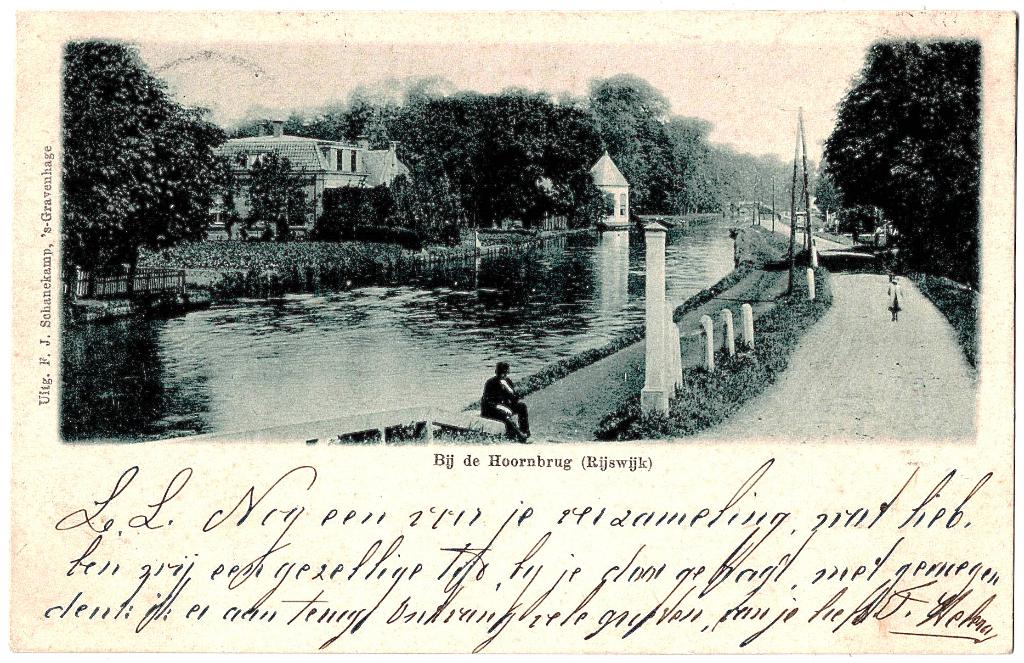 Uitg. F. J. Schanekamp, 's-Gravenhage
Bij de Hoornbrug (Rijswijk)
L. L. Nog een voor je verzameling, wat heb.
ben wij een gezellige tijd bij je door gebragt, met genoegen
denk ik er aan terug Ontvang vele groeten, van je liefh.